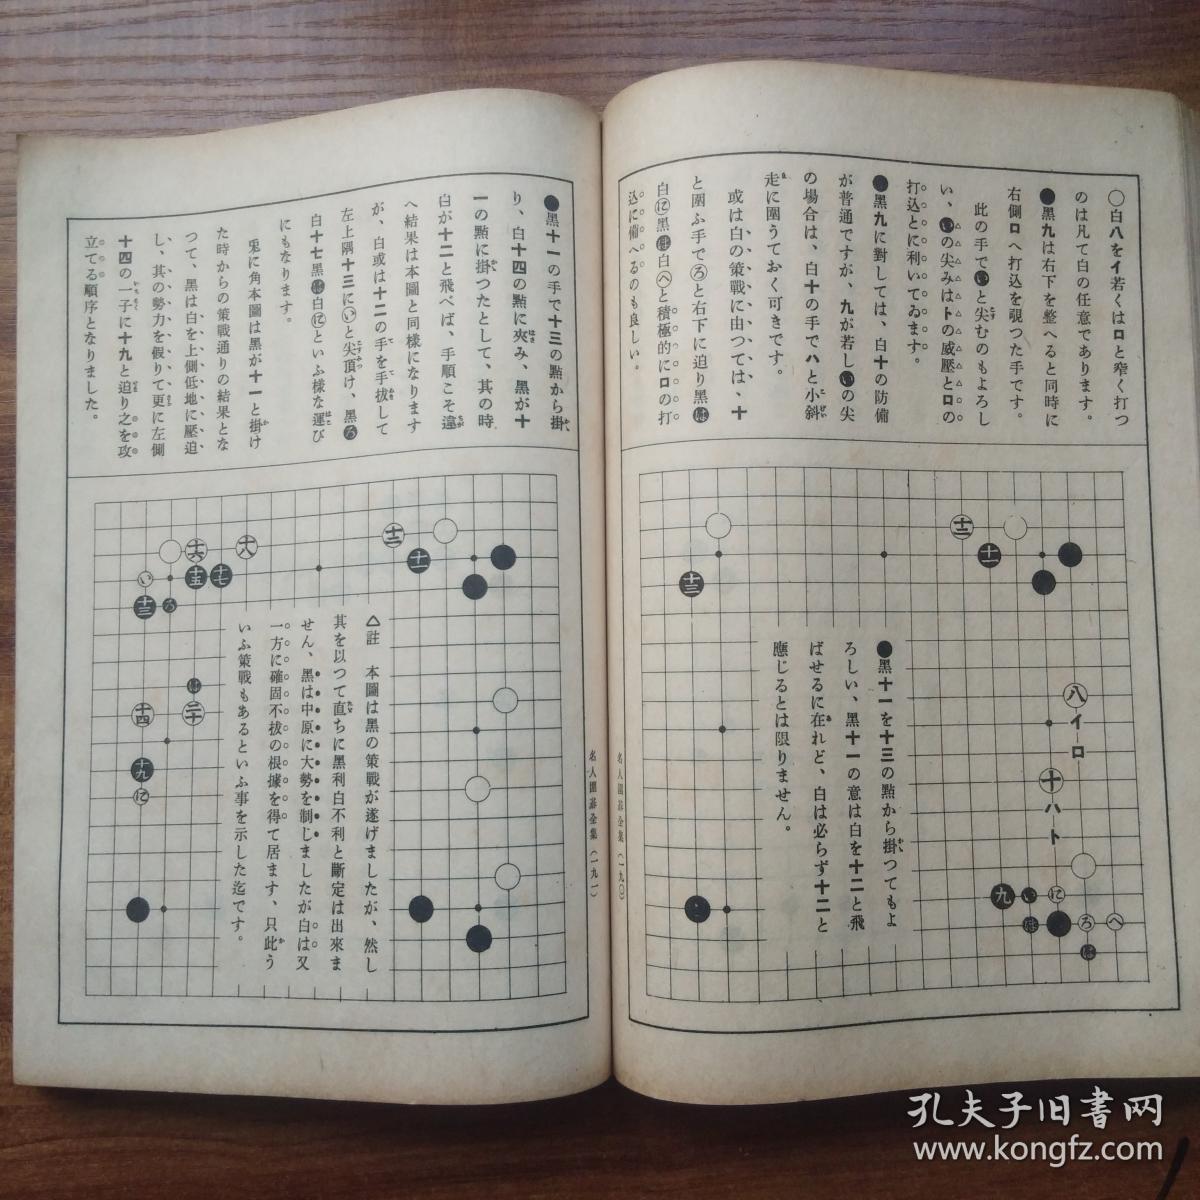 ○白八をイ若くはロと窄く打つ
のは凡て白の任意であります。
●黑九は右下を整へると同時に
右側ロへ打込を覗つた手です。
此の手でいと尖むのもよろし
い、いの尖みはトの威壓とロの
打込とに利いてゐます。
●黑九に對しては、白十の防備
が普通ですが、九が若しいの尖
の場合は、白十の手でハと小斜
走に圍うておく可きです。
或は白の策戰に由つては、十
と圍ふ手でろと右下に迫り黑は
白に黑は白へと積極的にロの打
込に備へるのも良しい。
十二
十一
十三
八
イ
ロ
十
ハ
ト
九
い
に
は
ろ
へ
は
●黑十一を十三の點から掛つてもよ
ろしい、黑十一の意は白を十二と飛
ばせるに在れど、白は必らず十二と
應じるとは限りません。
名人圍碁全集(一九〇)
●黑十一の手で十三の點から掛
り、白十四の點に夾み、黑が十
一の點に掛つたとして、其の時
白が十二と飛べば、手順こそ違
へ結果は本圖と同様になります
が、白或は十二の手を手拔して
左上隅十三にいと尖頂け、黑ろ
白十七黑は白にといふ様な運び
にもなります。
兎に角本圖は黑が十一と掛け
た時からの策戰通りの結果とな
つて、黑は白を上側低地に壓迫
し、其の勢力を假りて更に左側
十四の一子に十九と迫り之を攻
立てる順序となりました。
十二
十一
十八
十六
十五
十七
い
十三
ろ
は
十四
二十
十九
に
△註 本圖は黑の策戰が遂げましたが、然し
其を以つて直ちに黑利白不利と斷定は出來ま
せん、黑は中原に大勢を制しましたが白は又
一方に確固不拔の根據を得て居ます、只此う
いふ策戰もあるといふ事を示した迄です。
名人圍碁全集(一九一)
孔夫子旧書网
www.kongfz.com